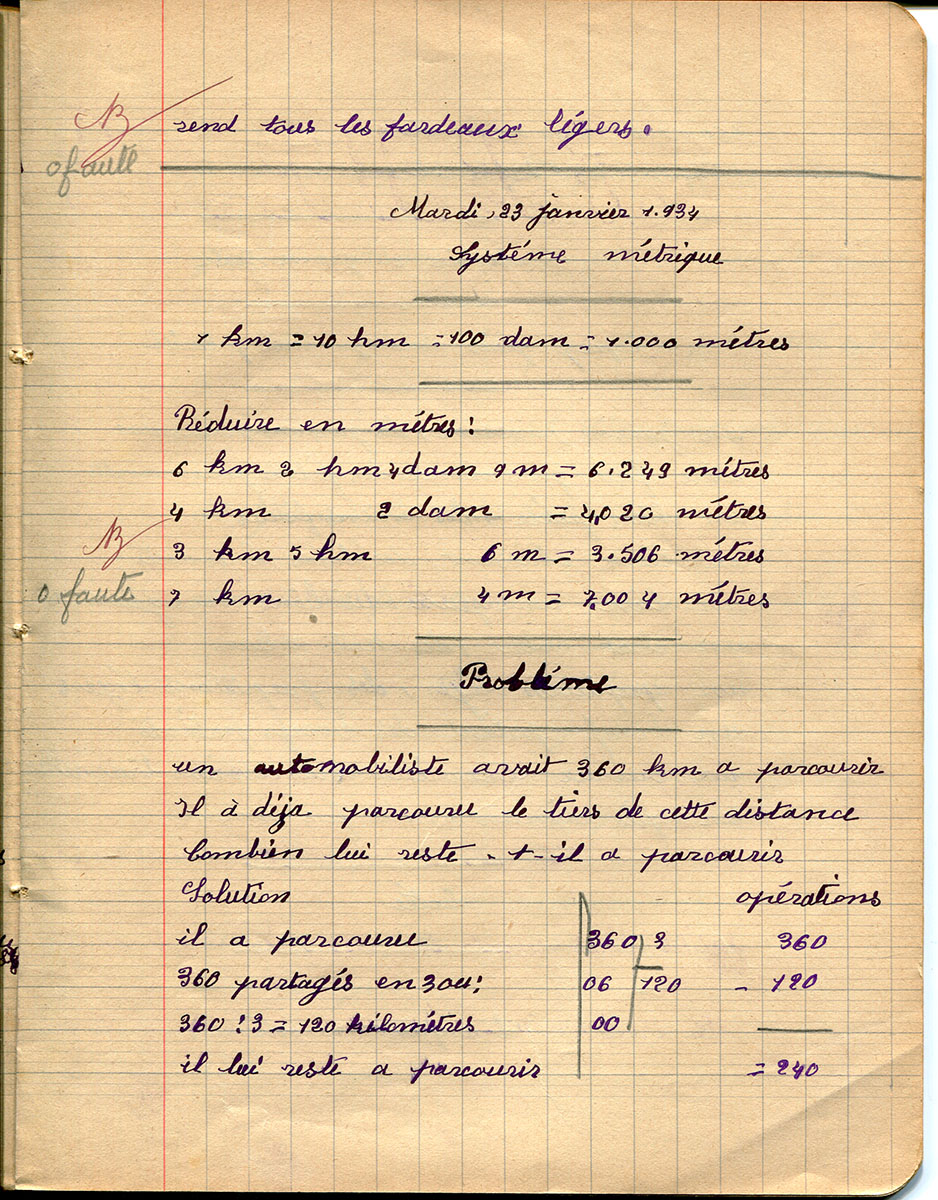 B
0 faute
rend tous les fardeaux légers.
Mardi, 23 janvier 1.934
Systéme métrique
1 km = 10 hm = 100 dam = 1.000 métres
Réduire en métres :
6 km 2 hm 4 dam 9 m = 6.249 métres
4 km 2 dam = 4,020 métres
B
3 km 5 hm 6 m = 3.506 métres
0 faute
7 km 4 m = 7.004 métres
Probléme
un automobiliste avait 360 km a parcourir
Il à déja parcouru le tiers de cette distance
Combien lui reste - t - il a parcourir
Solution opérations
il a parcouru 360 3 360
360 partagés en 3 ou : 06 120 - 120
360 : 3 = 120 kilométres 00
il lui reste a parcourir = 240